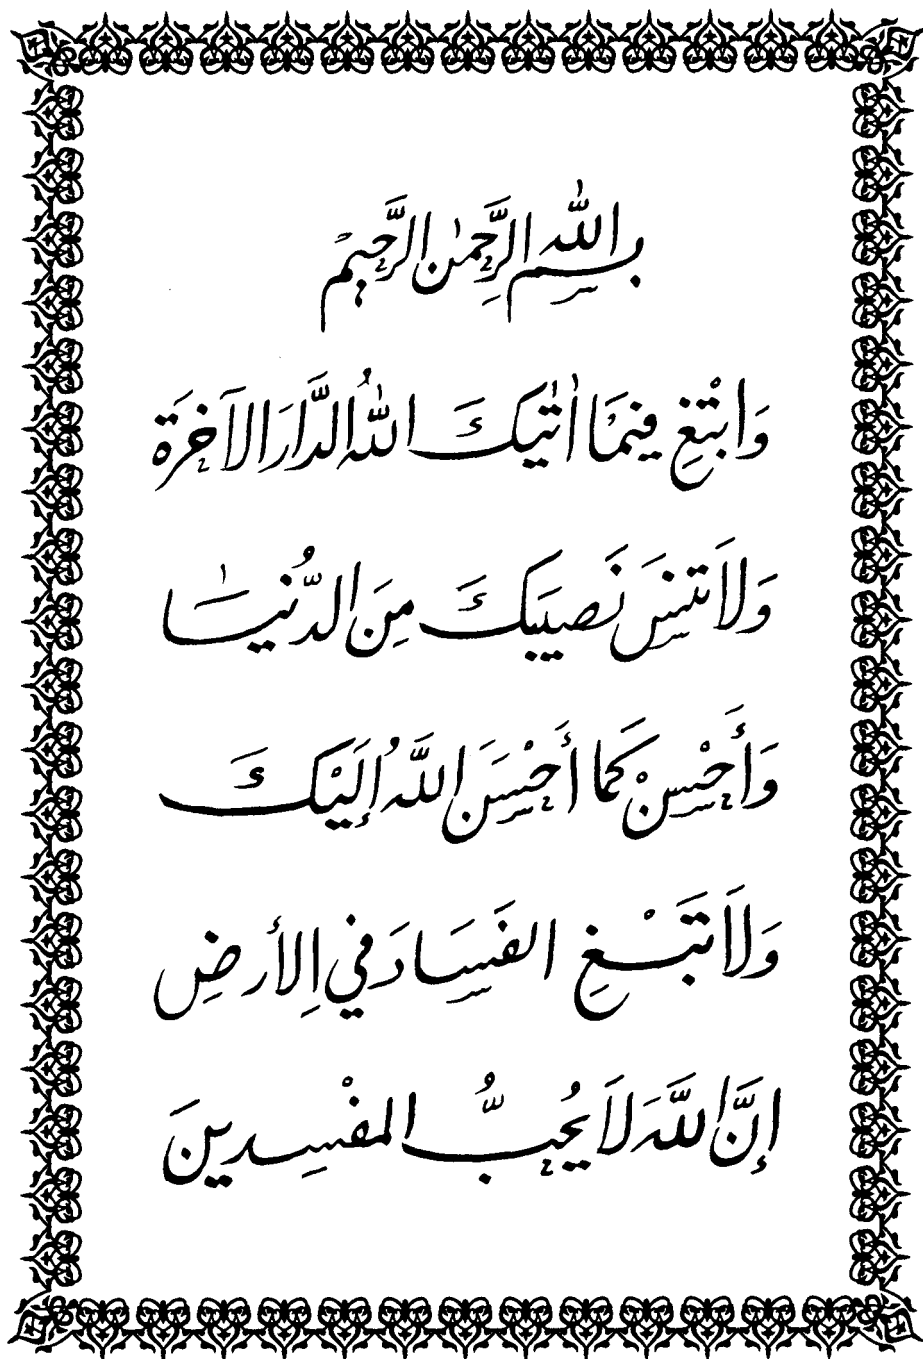 بِسْمِ اللهِ الرَّحْمٰنِ الرَّحِيْمِ
وَابْتَغِ فِيْمَا اٰتٰيكَ اللّٰهُ الدَّارَ الآخِرَةَ
وَلاَ تَنْسَ نَصِيبَكَ مِنَ الدُّنْيَا
وَأَحْسِنْ كَمَا أَحْسَنَ اللَّهُ إِلَيْكَ
وَلاَ تَبْغِ الفَسَادَ فِي الأَرْضِ
إِنَّ اللَّهَ لاَ يُحِبُّ المفْسِدِينَ